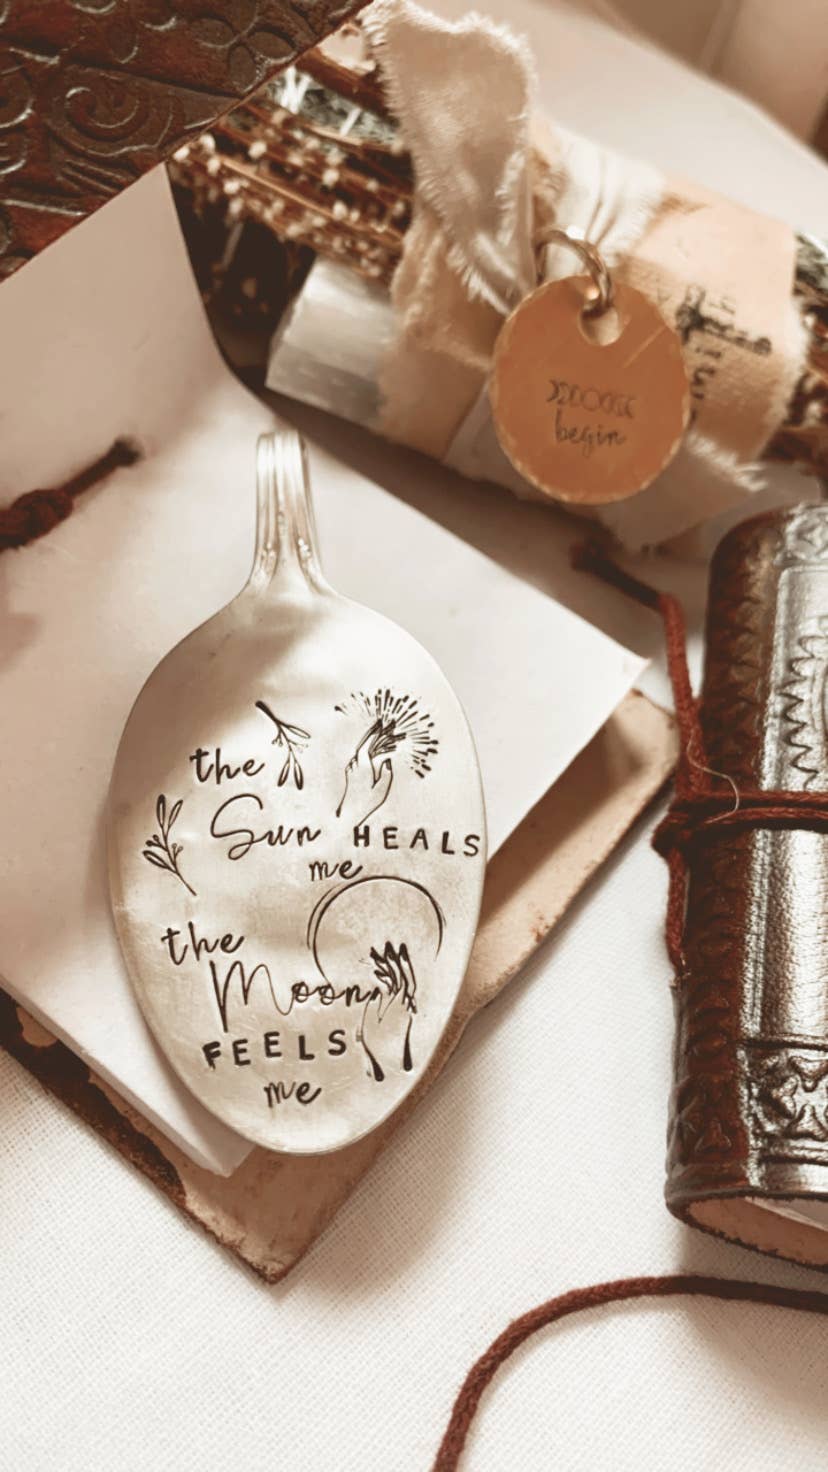 begin
the
Sun HEALS
me
the
Moon
FEELS
me